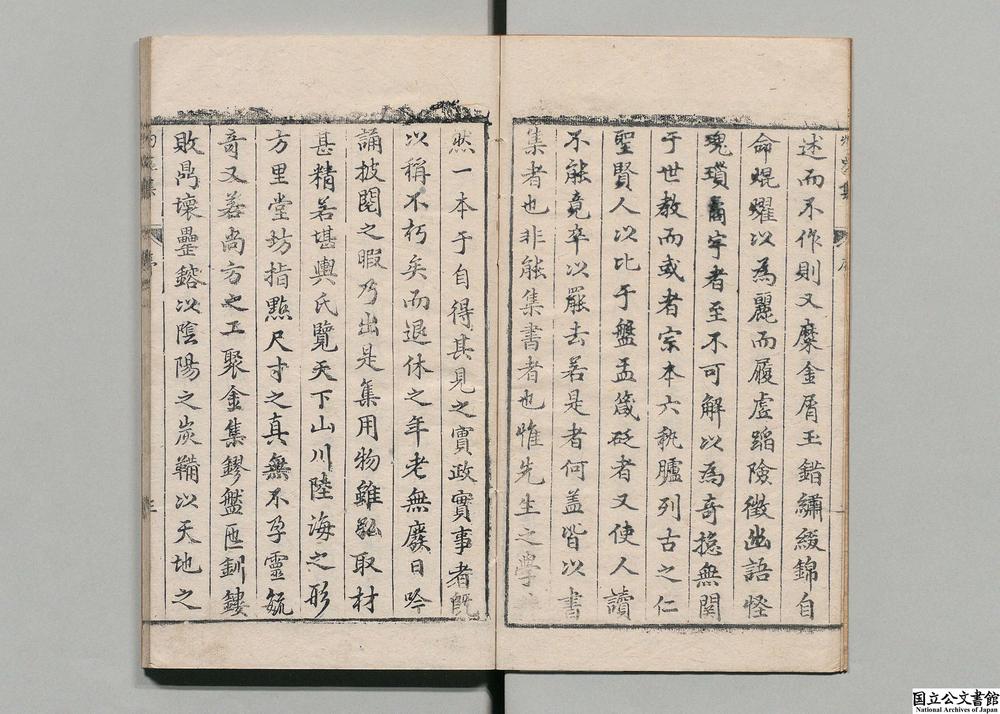 述而不作則又糜金屑玉錯繡綴錦自
命焜燿以為麗而履虛蹈險徵幽語怪
瑰瓆裔宇者至不可解以為奇摠無関
于世教而或者宗本六執臚列古之仁
聖賢人以比于盤盂箴砭者又使人讀
不能竟卒以罷去若是者何盖皆以書
集者也非能集書者也惟先生之學
然一本于自得其見之實政實事者既
以稱不朽矣而退休之年老無廢日吟
誦披閱之暇乃出是集用物雖弘取材
甚精若堪輿氏覽天下山川陸海之形
方里堂坊指點尺寸之真無不孕靈毓
奇又若尚方之工聚金集鏐盤匜釧鏤
敗鼎壞罍鎔以陰陽之炭鞴以天地之
三
国立公文書館
National Archives of Japan